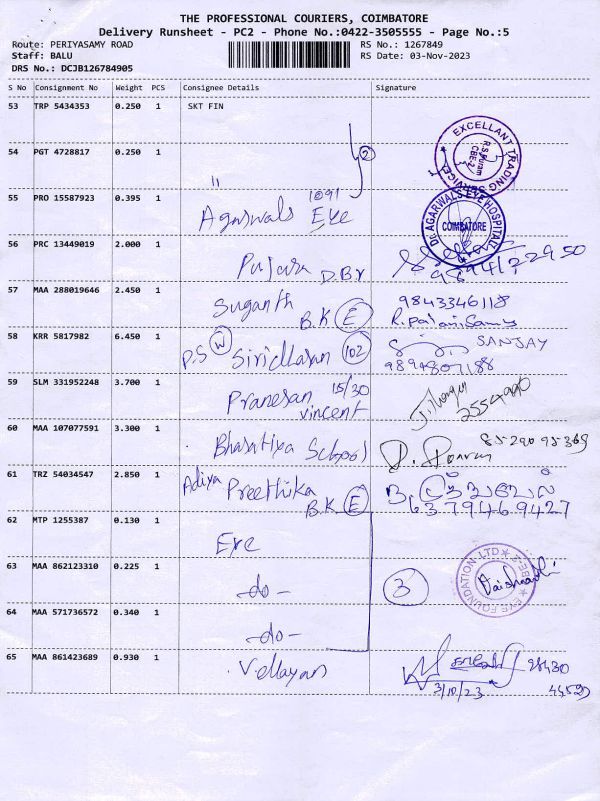 THE PROFESSIONAL COURIERS, COIMBATORE
Delivery Runsheet - PC2 - Phone No.:0422-3505555 - Page No.:5
Route: PERIYASAMY ROAD RS No.: 1267849
Staff: BALU RS Date: 03-Nov-2023
DRS No.: DCJB126784905
S No Consignment No Weight PCS Consignee Details Signature
53 TRP 5434353 0.250 1 SKT FIN
EXCELLANT TRADING SERVICES R.S.Puram CBE-2
54 PGT 4728817 0.250 1 " 2
55 PRO 15587923 0.395 1 Agarwals Eye 1091
Dr. AGARWALS EYE HOSPITAL COIMBATORE
56 PRC 13449019 2.000 1 Pujara D.BR
57 MAA 288019646 2.450 1 Suganth B.K E 9843346118
58 KRR 5817982 6.450 1 P.S W 102 SANJAY
9894807188
59 SLM 331952248 3.700 1 Pranesan 15/30 vincent
60 MAA 107077591 3.300 1 Bharatiya School
61 TRZ 54034547 2.850 1 Preethika B.K E
6379469427
62 MTP 1255387 0.130 1 Eye
63 MAA 862123310 0.225 1 -do- 3
EYE FOUNDATION LTD
64 MAA 571736572 0.340 1 -do-
65 MAA 861423689 0.930 1 Vellayan 28430
3/10/23